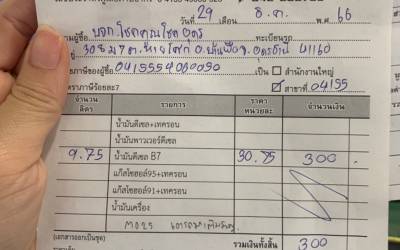 วันที่ 29 เดือน ธ.ค. พ.ศ. 66
นามผู้ซื้อ บจก. โชคคุณโชค อุดร ทะเบียนรถ
308 ม 7 ต. อ. จ.อุดรธานี 41160
ภาษีของผู้ซื้อ เป็น สำนักงานใหญ่
ตราภาษีร้อยละ 7 สาขาที่ 04195
จำนวนลิตร รายการ ราคาหน่วยละ จำนวนเงิน
น้ำมันดีเซล+เทครอน
น้ำมันพาวเวอร์ดีเซล
9.75 น้ำมันดีเซล B7 30.75 300
แก๊สโซฮอล์95+เทครอน
แก๊สโซฮอล์91+เทครอน
น้ำมันเครื่อง
(เอกสารออกเป็นชุด) รวมเงินทั้งสิ้น 300